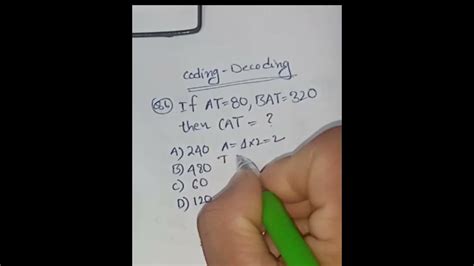 Coding-Decoding
If AT=80, BAT=320
then CAT = ?
A) 240 A=1x2=2
B) 480 T
C) 60
D) 120